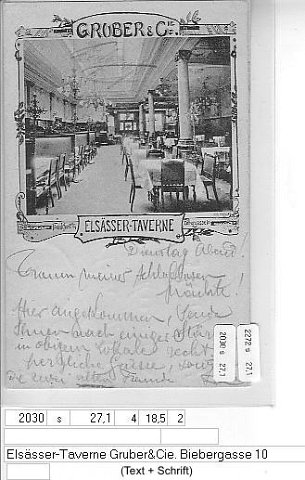 GRUBER & CIE.
ELSÄSSER-TAVERNE
Dienstag Abend!
Traum meiner schlaflosen
Nächte!
Hier angekommen, sende
Ihnen nach einiger
in obigem Lokale recht
herzliche Grüsse,
2030 s 27,1
2272 s 27,1
2030 s 27,1 4 18,5 2
Elsässer-Taverne Gruber&Cie. Biebergasse 10
(Text + Schrift)